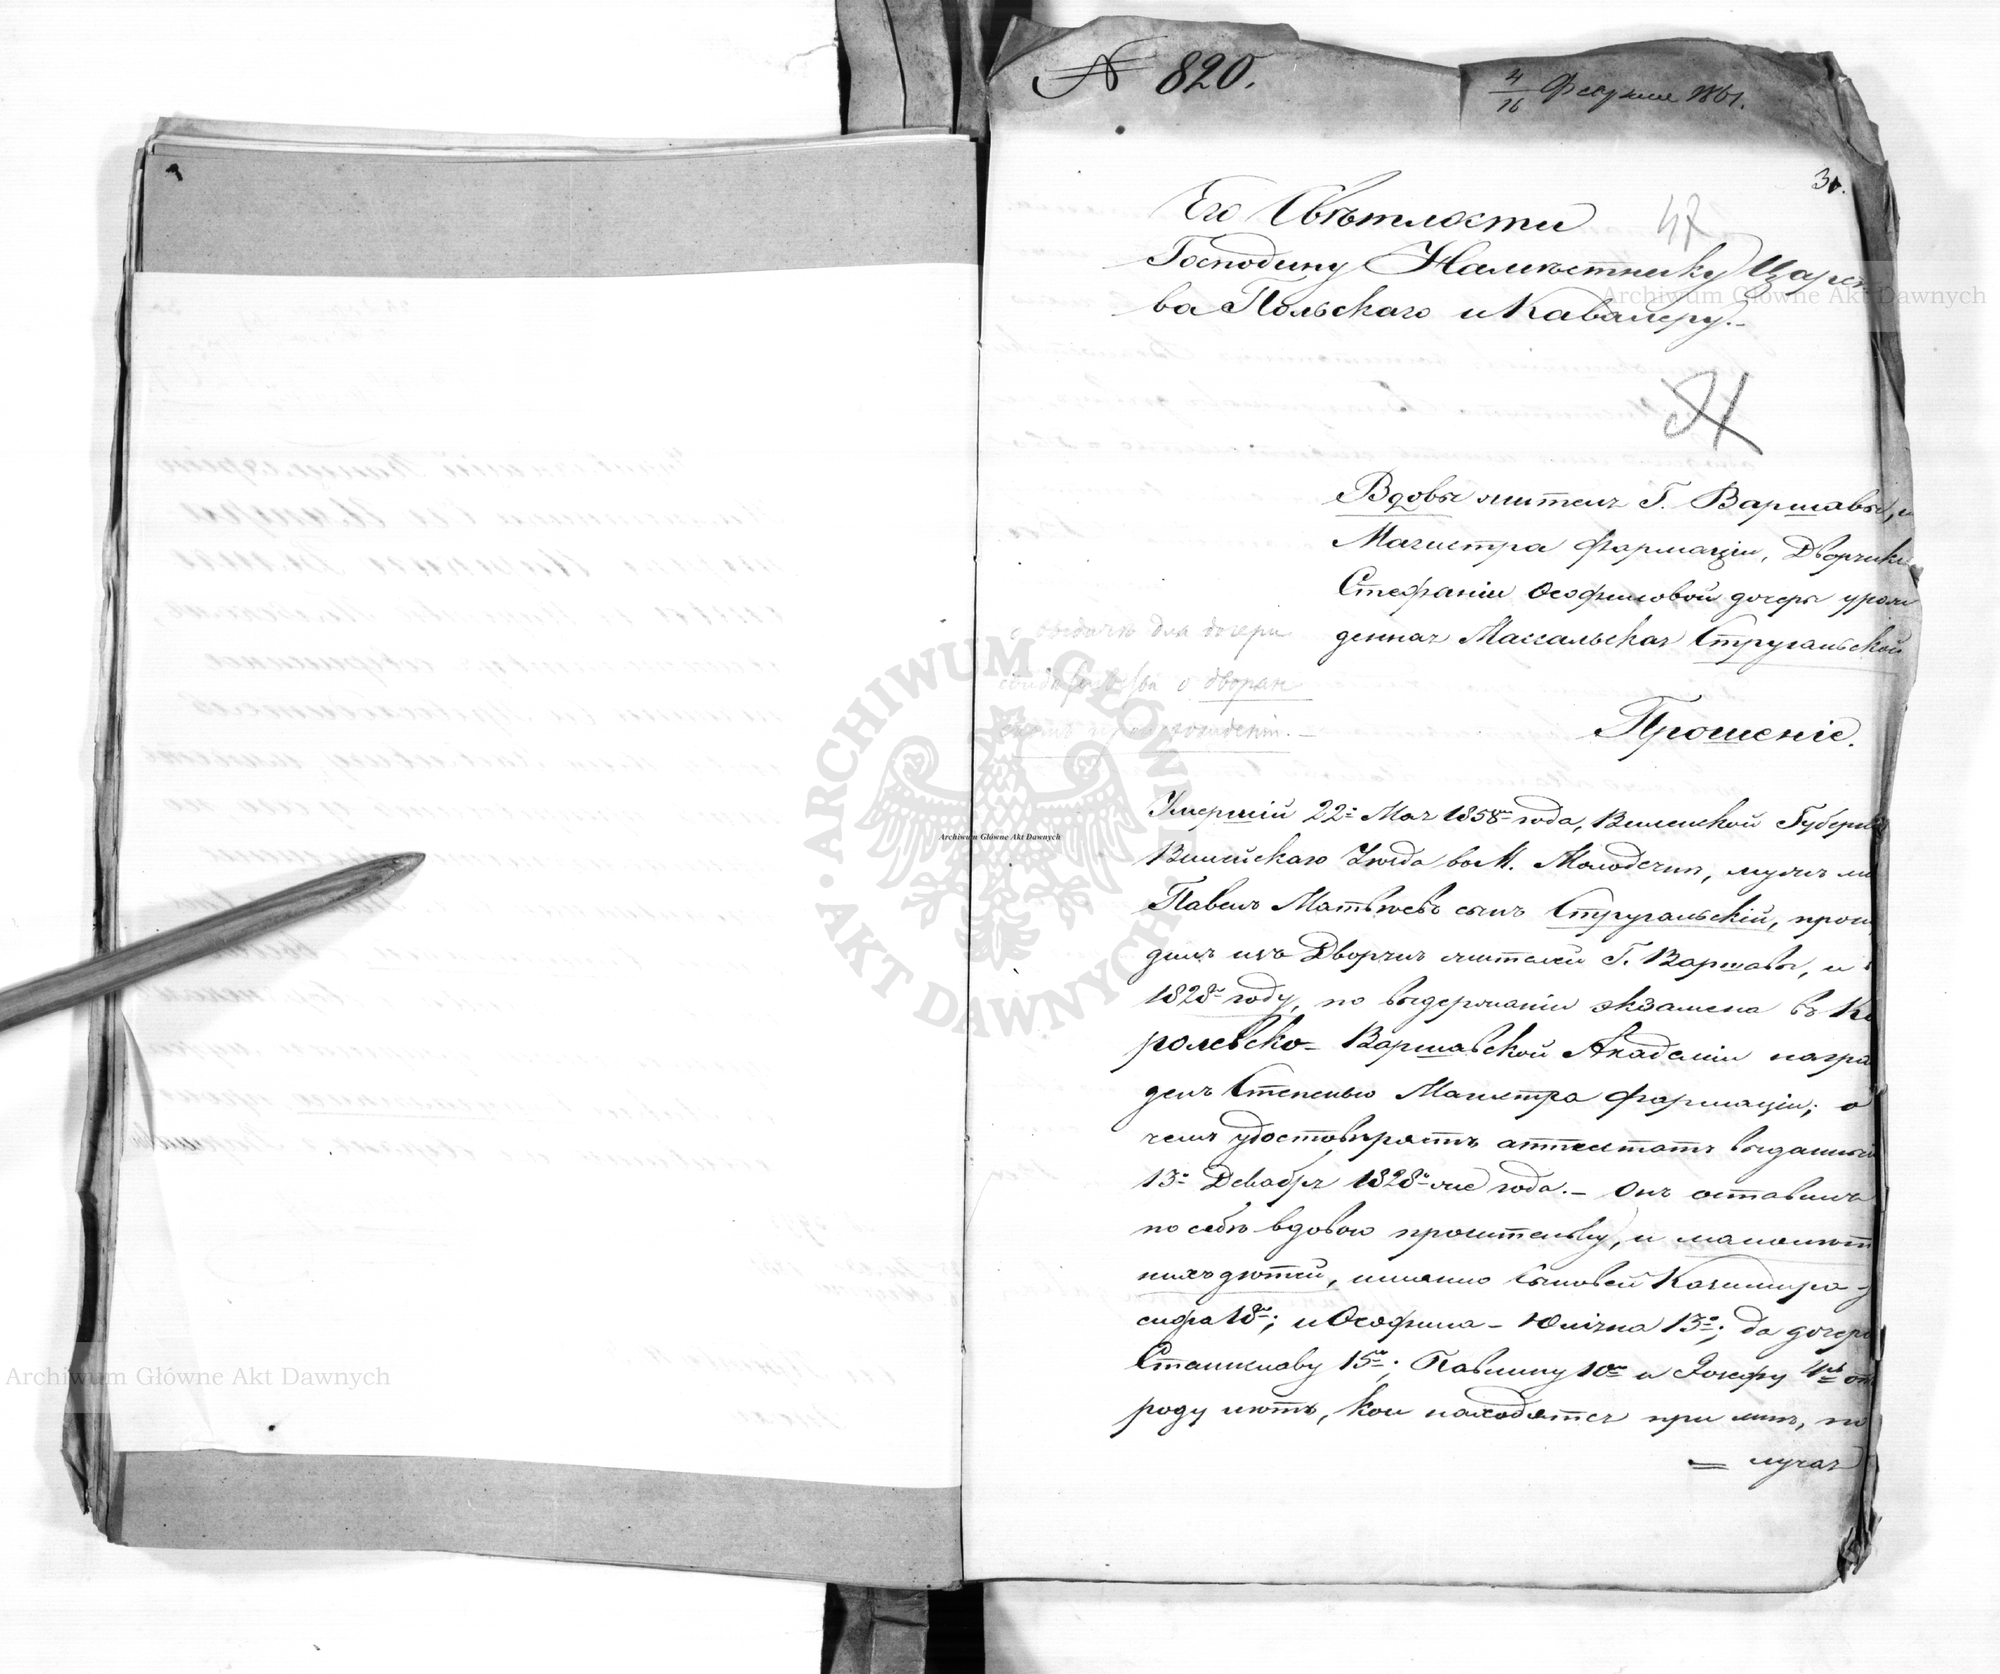 № 820.
4/16 Февраля 1861.
31.
47
Его Свѣтлости
Господину Намѣстнику Царст
ва Польскаго и Кавалеру.
Вдовы жителя Г. Варшавы,
Магистра Фармаціи, Дворянки
Стефаніи Ѳеофиловой дочери урож
денная Массальская Стругальской
о выдачѣ для дочери
свидѣтельства о дворян
скомъ происхожденіи.
Прошеніе.
Умершій 22го Мая 1858го года, Виленской Губерніи
Вилейскаго Уѣзда въ М. Молодечнѣ, мужъ
Павелъ Матвѣевъ сынъ Стругальскій, происхо
дилъ изъ Дворянъ жителей Г. Варшавы, и въ
1828мъ году, по выдержаніи экзамена въ Ко
ролевско-Варшавской Академіи награж
денъ Степенью Магистра Фармаціи; о
чемъ удостовѣряетъ аттестатъ выданный
13го Декабря 1828го же года. – Онъ оставилъ
по себѣ вдовою просительницу, и малолѣт
нихъ дѣтей, именно Сыновей Казимира-
сифа 18ти; и Ѳеофила-Юліана 13ти; да дочерей
Станиславу 15ти; Павлину 10ти и Іозефу 4хъ отъ
роду лѣтъ, кои находятся при мнѣ, по
лучая
Archiwum Główne Akt Dawnych
Archiwum Główne Akt Dawnych
Archiwum Główne Akt Dawnych
ARCHIWUM GŁÓWNE AKT DAWNYCH